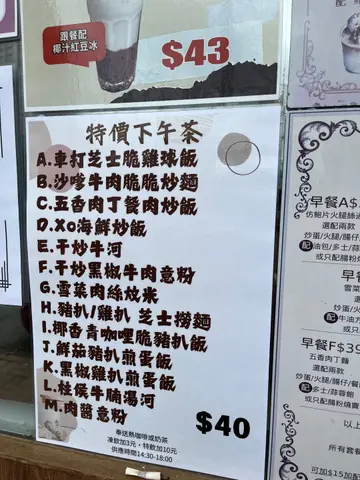 跟餐配
椰汁紅豆冰
$43
特價下午茶
A.車打芝士脆雞球飯
B.沙嗲牛肉脆脆炒麵
C.五香肉丁餐肉炒飯
D.XO海鮮炒飯
E.干炒牛河
F.干炒黑椒牛肉意粉
G.雪菜肉絲炆米
H.豬扒/雞扒 芝士撈麵
I.椰香青咖哩脆豬扒飯
J.鮮茄豬扒煎蛋飯
K.黑椒雞扒煎蛋飯
L.柱侯牛腩湯河
M.肉醬意粉
$40
奉送熱咖啡或奶茶
凍飲加3元，特飲加10元
供應時間14:30-18:00
早餐A$3
仿鮑片火腿絲
選配兩款
炒蛋/火腿/腸仔
配 油包/多士/
或只配腸粉
早餐
雪菜
配 牛油方
或只
早餐F$39
五香肉丁麵
選配兩款
炒蛋/火腿/腸仔/餐
配 多士/蒜蓉飽
或只配腸粉燒賣
所有套餐
可加$15加配